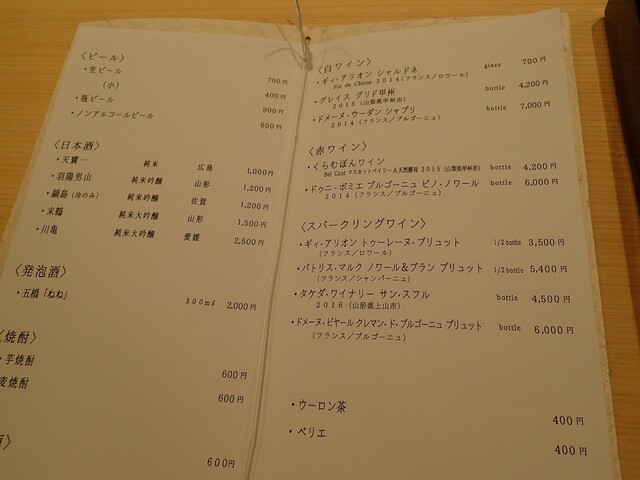 〈ビール〉
・生ビール 700円
(小) 400円
・瓶ビール 900円
・ノンアルコールビール 600円
〈日本酒〉
・天寶一 純米 広島 1,000円
・羽陽男山 純米吟醸 山形 1,200円
・鍋島(冷のみ) 純米吟醸 佐賀 1,200円
・米鶴 純米大吟醸 山形 1,500円
・川亀 純米大吟醸 愛媛 2,500円
〈発泡酒〉
・五橋「ねね」 300ml 2,000円
〈焼酎〉
・芋焼酎 600円
麦焼酎 600円
〉
600円
〈白ワイン〉
・ギィ・アリオン シャルドネ glass 700円
2014(フランス/ロワール)
・グレイス グリド甲州 bottle 4,200円
2015(山梨県甲州市)
・ドメーヌ・ウーダン シャブリ bottle 7,000円
2014(フランス/ブルゴーニュ)
〈赤ワイン〉
・くらむぼんワイン bottle 4,200円
Bel Cant マスカットベイリーA天然酵母 2015(山梨県甲州市)
・ドゥニ・ポミエ ブルゴーニュ ピノ・ノワール bottle 6,000円
2014(フランス/ブルゴーニュ)
〈スパークリングワイン〉
・ギィ・アリオン トゥーレーヌ・ブリュット 1/2 bottle 3,500円
(フランス/ロワール)
・パトリス・マルク ノワール&ブラン ブリュット 1/2 bottle 5,400円
(フランス/シャンパーニュ)
・タケダ・ワイナリー サン・スフル bottle 4,500円
2016(山形県上山市)
・ドメーヌ・ピヤール クレマン・ド・ブルゴーニュ ブリュット bottle 6,000円
(フランス/ブルゴーニュ)
・ウーロン茶 400円
・ペリエ 400円